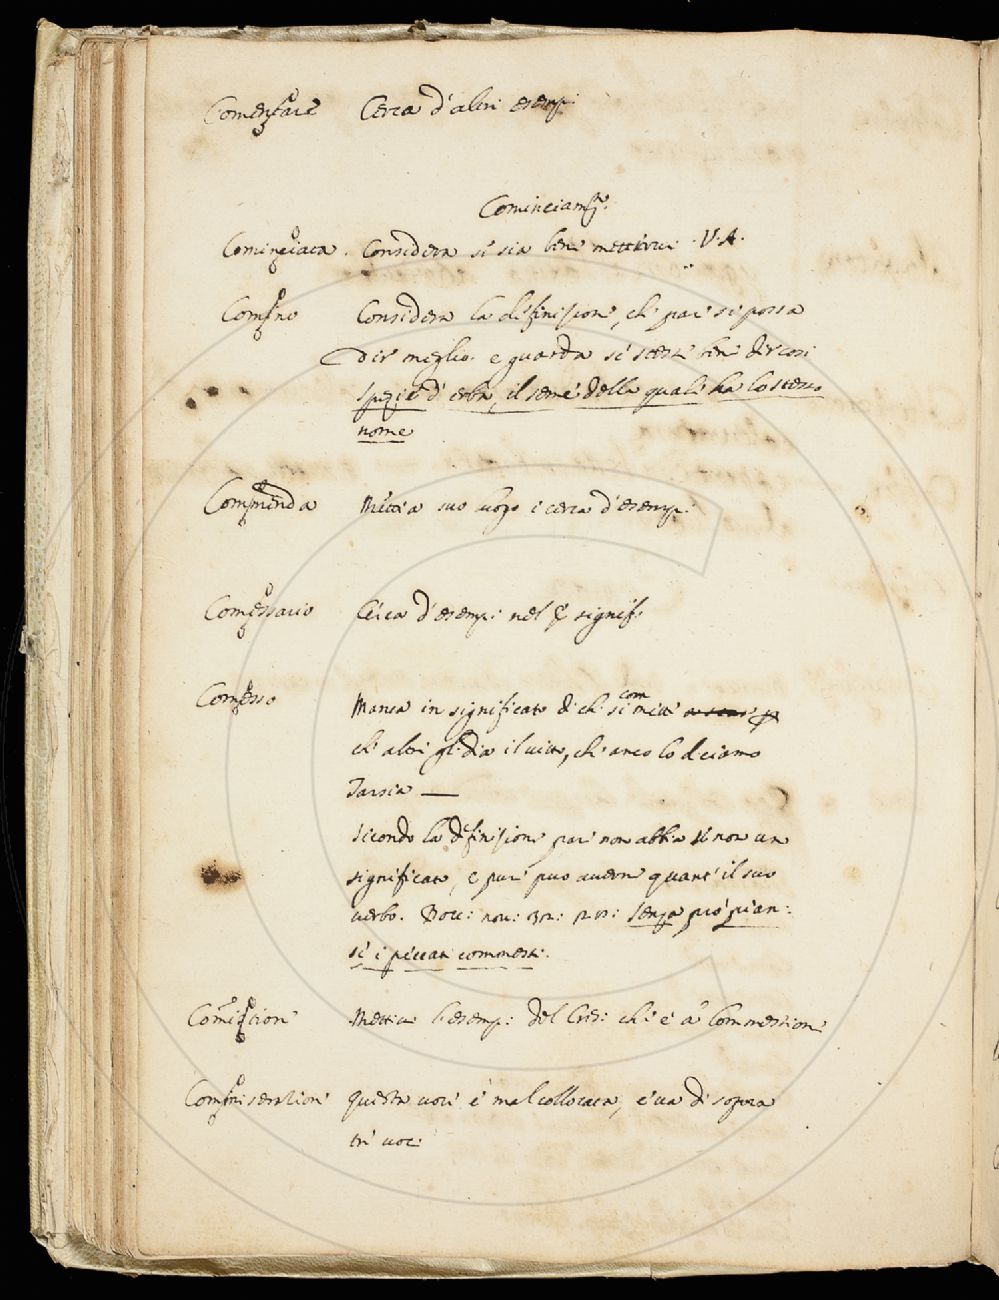 Comentare Cerca d'altri esempi
Cominciamto:
Cominciata. Considera se sia bene mettervi V. A.
Comino Considera la difinizione, che pare si possa
dir meglio. e guarda se stesse bene dir così
spezie d'erba, il seme della quale ha lo stesso
nome
Commenda Metti a suo luogo e cerca d'esempi
Commessario Cerca d'esempi nel signif:
Commesso Manca in significato di chi si mette com
che altri gli dia il vitto, che anco lo diciamo
Tarsia —
Secondo la difinizione pare non abbia se non un
significato, e pure può averne quanti il suo
verbo. Bocc: nov: 32: senza pro pian:
se i peccati commessi.
Commezione Mettivi l'esemp: del Cres: che è a Commestione
Commiserazione questa voce è mal collocata, e va di sopra
tre voci